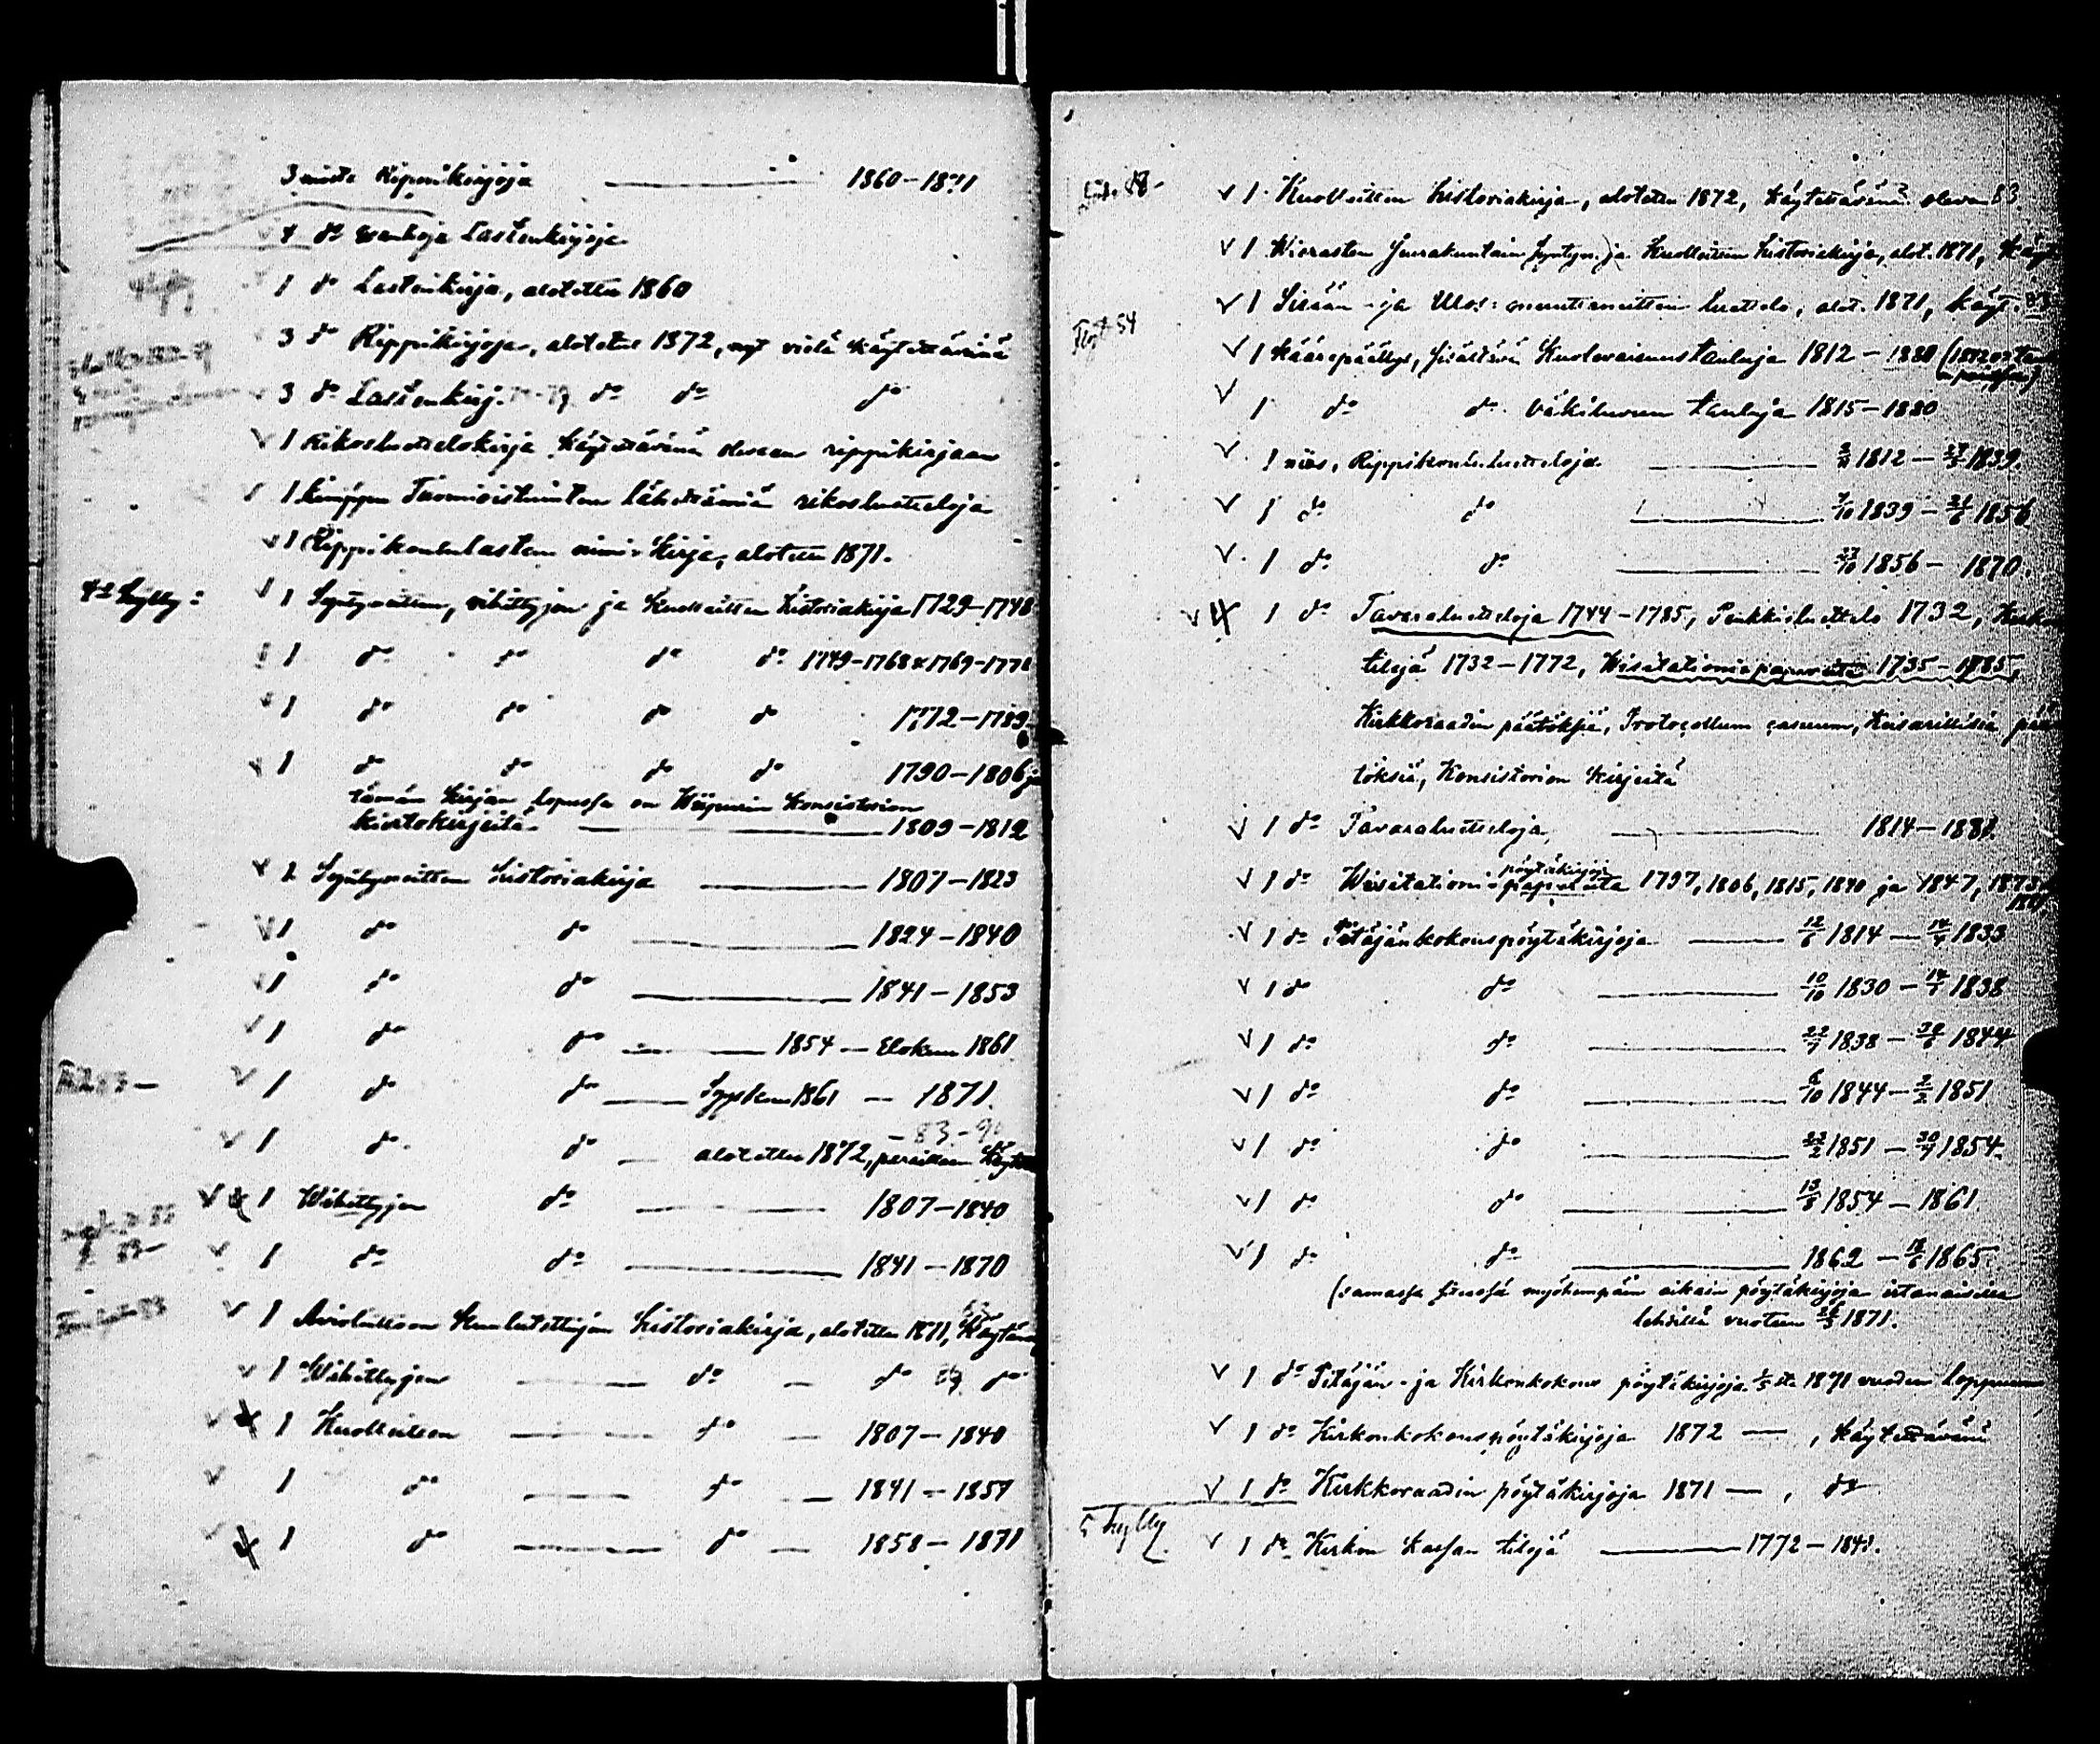 3 nidettä Rippikirjoja 1860–1871
4 do wanhoja Lastenkirjoja
1 do Lastenkirja, alotettu 1860
3 do Rippikirjoja, alotetut 1872, nyt vielä käytettävinä
3 do Lastenkirj. do do do
1 Rikosluettelokirja käytettävinä olevaan rippikirjaan
1 kimppu Tuomioistuinten lähettämiä rikosluetteloja
1 Rippikoululasten nimi-kirja, alotettu 1871.
4s hylly: 1 Syntyneitten, vihittyjen ja kuolleitten historiakirja 1729–1748
1 do do do do 1749–1768 & 1769–1771
1 do do do do 1772–1789
1 do do do do 1790–1806 ja
tämän kirjan lopussa on Wiipurin konsistorion
kiertokirjeitä 1809–1812
1 Syntyneitten historiakirja 1807–1823
1 do do 1824–1840
1 do do 1841–1853
1 do do 1854 – Elokuu 1861
1 do do Syyskuu 1861 – 1871.
– 83 – 90
1 do do alotettu 1872,
1 Wihittyjen do 1807–1840
1 do do 1841–1870
1 Avioliittoon kuulutettujen historiakirja, alotettu 1871,
1 Wihittyjen do do do
1 Kuolleitten do 1807–1840
1 do do 1841–1857
1 do do 1858–1871
1 Kuolleitten historiakirja, alotettu 1872, käytettävänä oleva 83.
1 Wierasten seurakuntain syntyn. ja Kuolleitten historiakirja, alot. 1871,
1 Sisään- ja Ulos-muuttaneitten luettelo, alot. 1871, käyt.
1 kääre päällys, sisältävä Kuolevaisuustauluja 1812–1880
1 do do Väkiluvun tauluja 1815–1880
1 nid, Rippikoululuetteloja 1812 – 1839.
1 do do 7/10 1839 – 1856
1 do do 1856 – 1870.
1 do Tavaraluetteloja 1744–1785, Penkkiluettelo 1732,
tilejä 1732–1772, Wisitationipapereita 1735–1785,
Kirkkoraadin päätöksiä, Protocollum casuum, Keisarillisia pää
töksiä, Konsistorion kirjeitä
1 do Tavaraluetteloja
pöytäkirjoja
1 do Wisitationi-papereita 1797, 1806, 1815, 1840 ja 1847,
1 do Pitäjänkokouspöytäkirjoja 12/6 1814 – 1833
1 do do 10/10 1830 – 1838
1 do do 1838 – 1844
1 do do 6/10 1844 – 2/2 1851
1 do do 1851 – 1854
1 do do 13/8 1854 – 1861
1 do do 1862 – 1865.
(samassa siteessä myöhempäin aikain pöytäkirjoja irtanaisilla
lehdillä vuoteen 1871.
1 do Pitäjän- ja Kirkonkokous pöytäkirjoja 1871 vuoden loppuun
1 do Kirkonkokouspöytäkirjoja 1872 — , käytettävänä
1 do Kirkkoraadin pöytäkirjoja 1871 — , do
5 hylly 1 do Kirkon kassan tilejä 1772–1841.